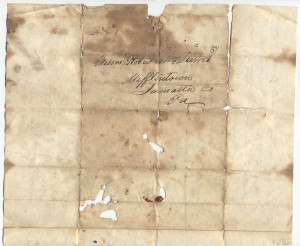 Messrs Robison &
Mifflintown
Juniatta Co
Pa